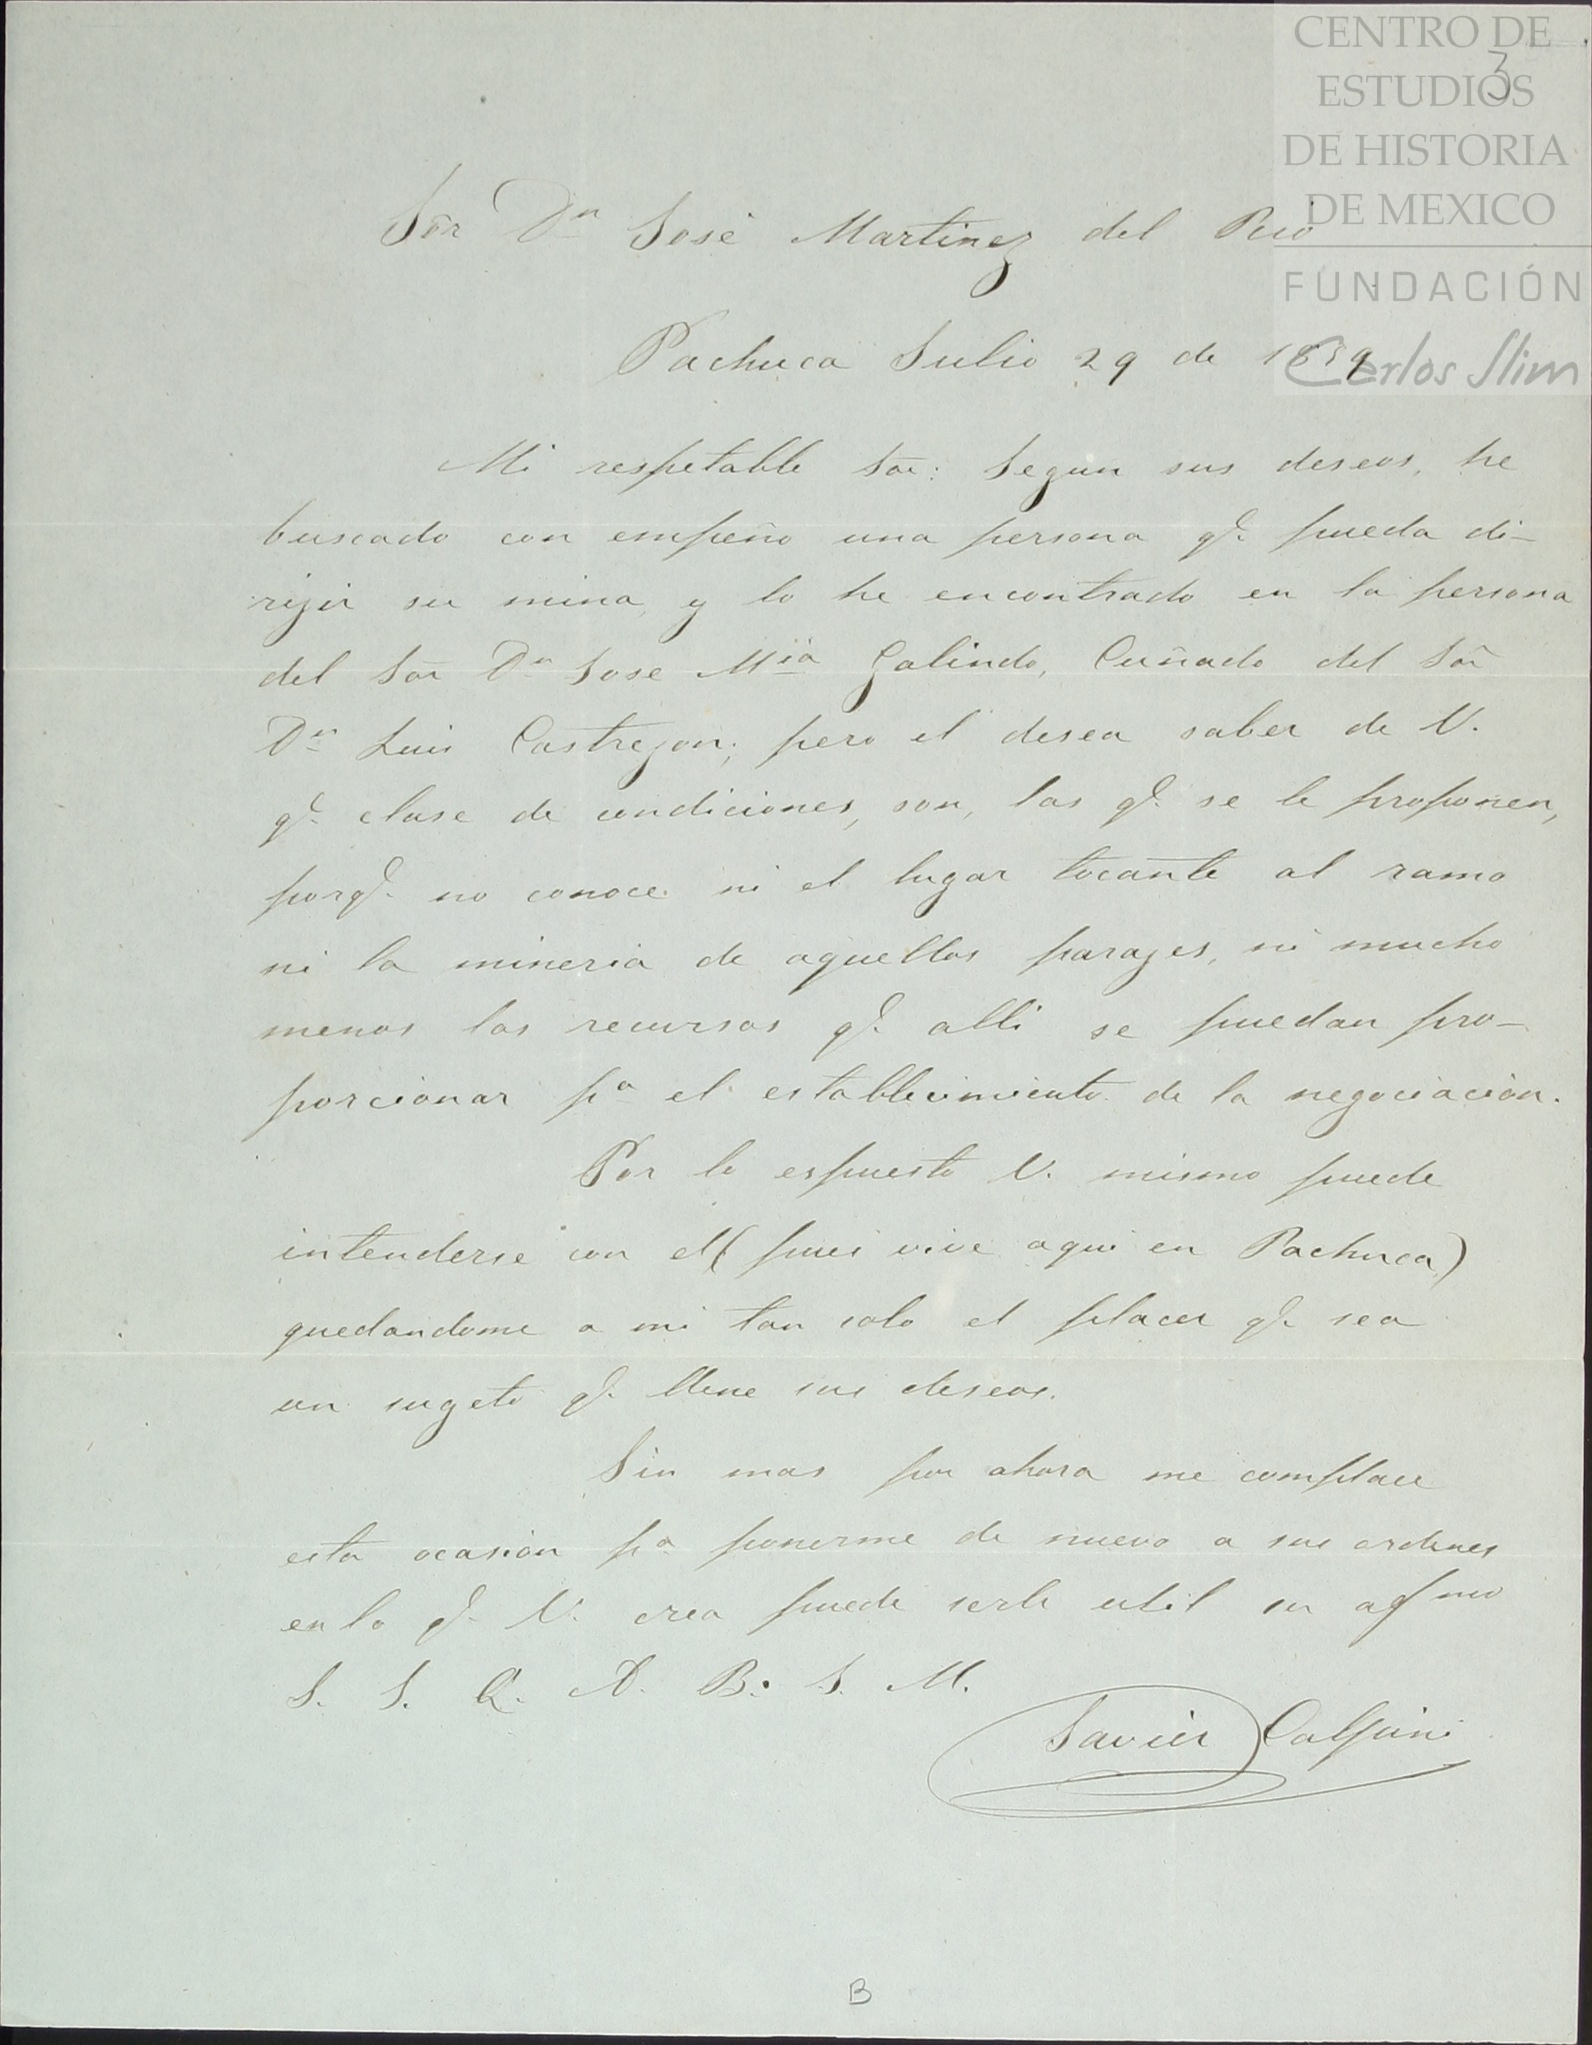 CENTRO DE
ESTUDIOS
DE HISTORIA
DE MEXICO
FUNDACIÓN
Carlos Slim
3
Sõr Dn José Martinez del Rio
Pachuca Julio 29 de 1859
Mi respetable Sõr: Segun sus deseos, he
buscado con empeño una persona q.e pueda di-
rijir su mina, y lo he encontrado en la persona
del Sõr Dn Jose Mría Galindo, Cuñado del Sõr
Dn Luis Castrejon; pero el desea saber de V.
q.e clase de condiciones, son, las q.e se le proponen,
porq.e no conoce ni el lugar tocante al ramo
ni la mineria de aquellos parajes, ni mucho
menos los recursos q.e alli se puedan pro-
porcionar pa el establecimiento de la negociación.
Por lo espuesto V. mismo puede
intenderse con el (pues vive aqui en Pachuca)
quedandome a mi tan solo el placer q.e sea
un sugeto q.e llene sus deseos.
Sin mas por ahora me complace
esta ocasión pa ponerme de nuevo a sus ordenes
en lo q.e V. crea puede serle util su afmo
S. S. Q. A. B. S. M.
Javier
B